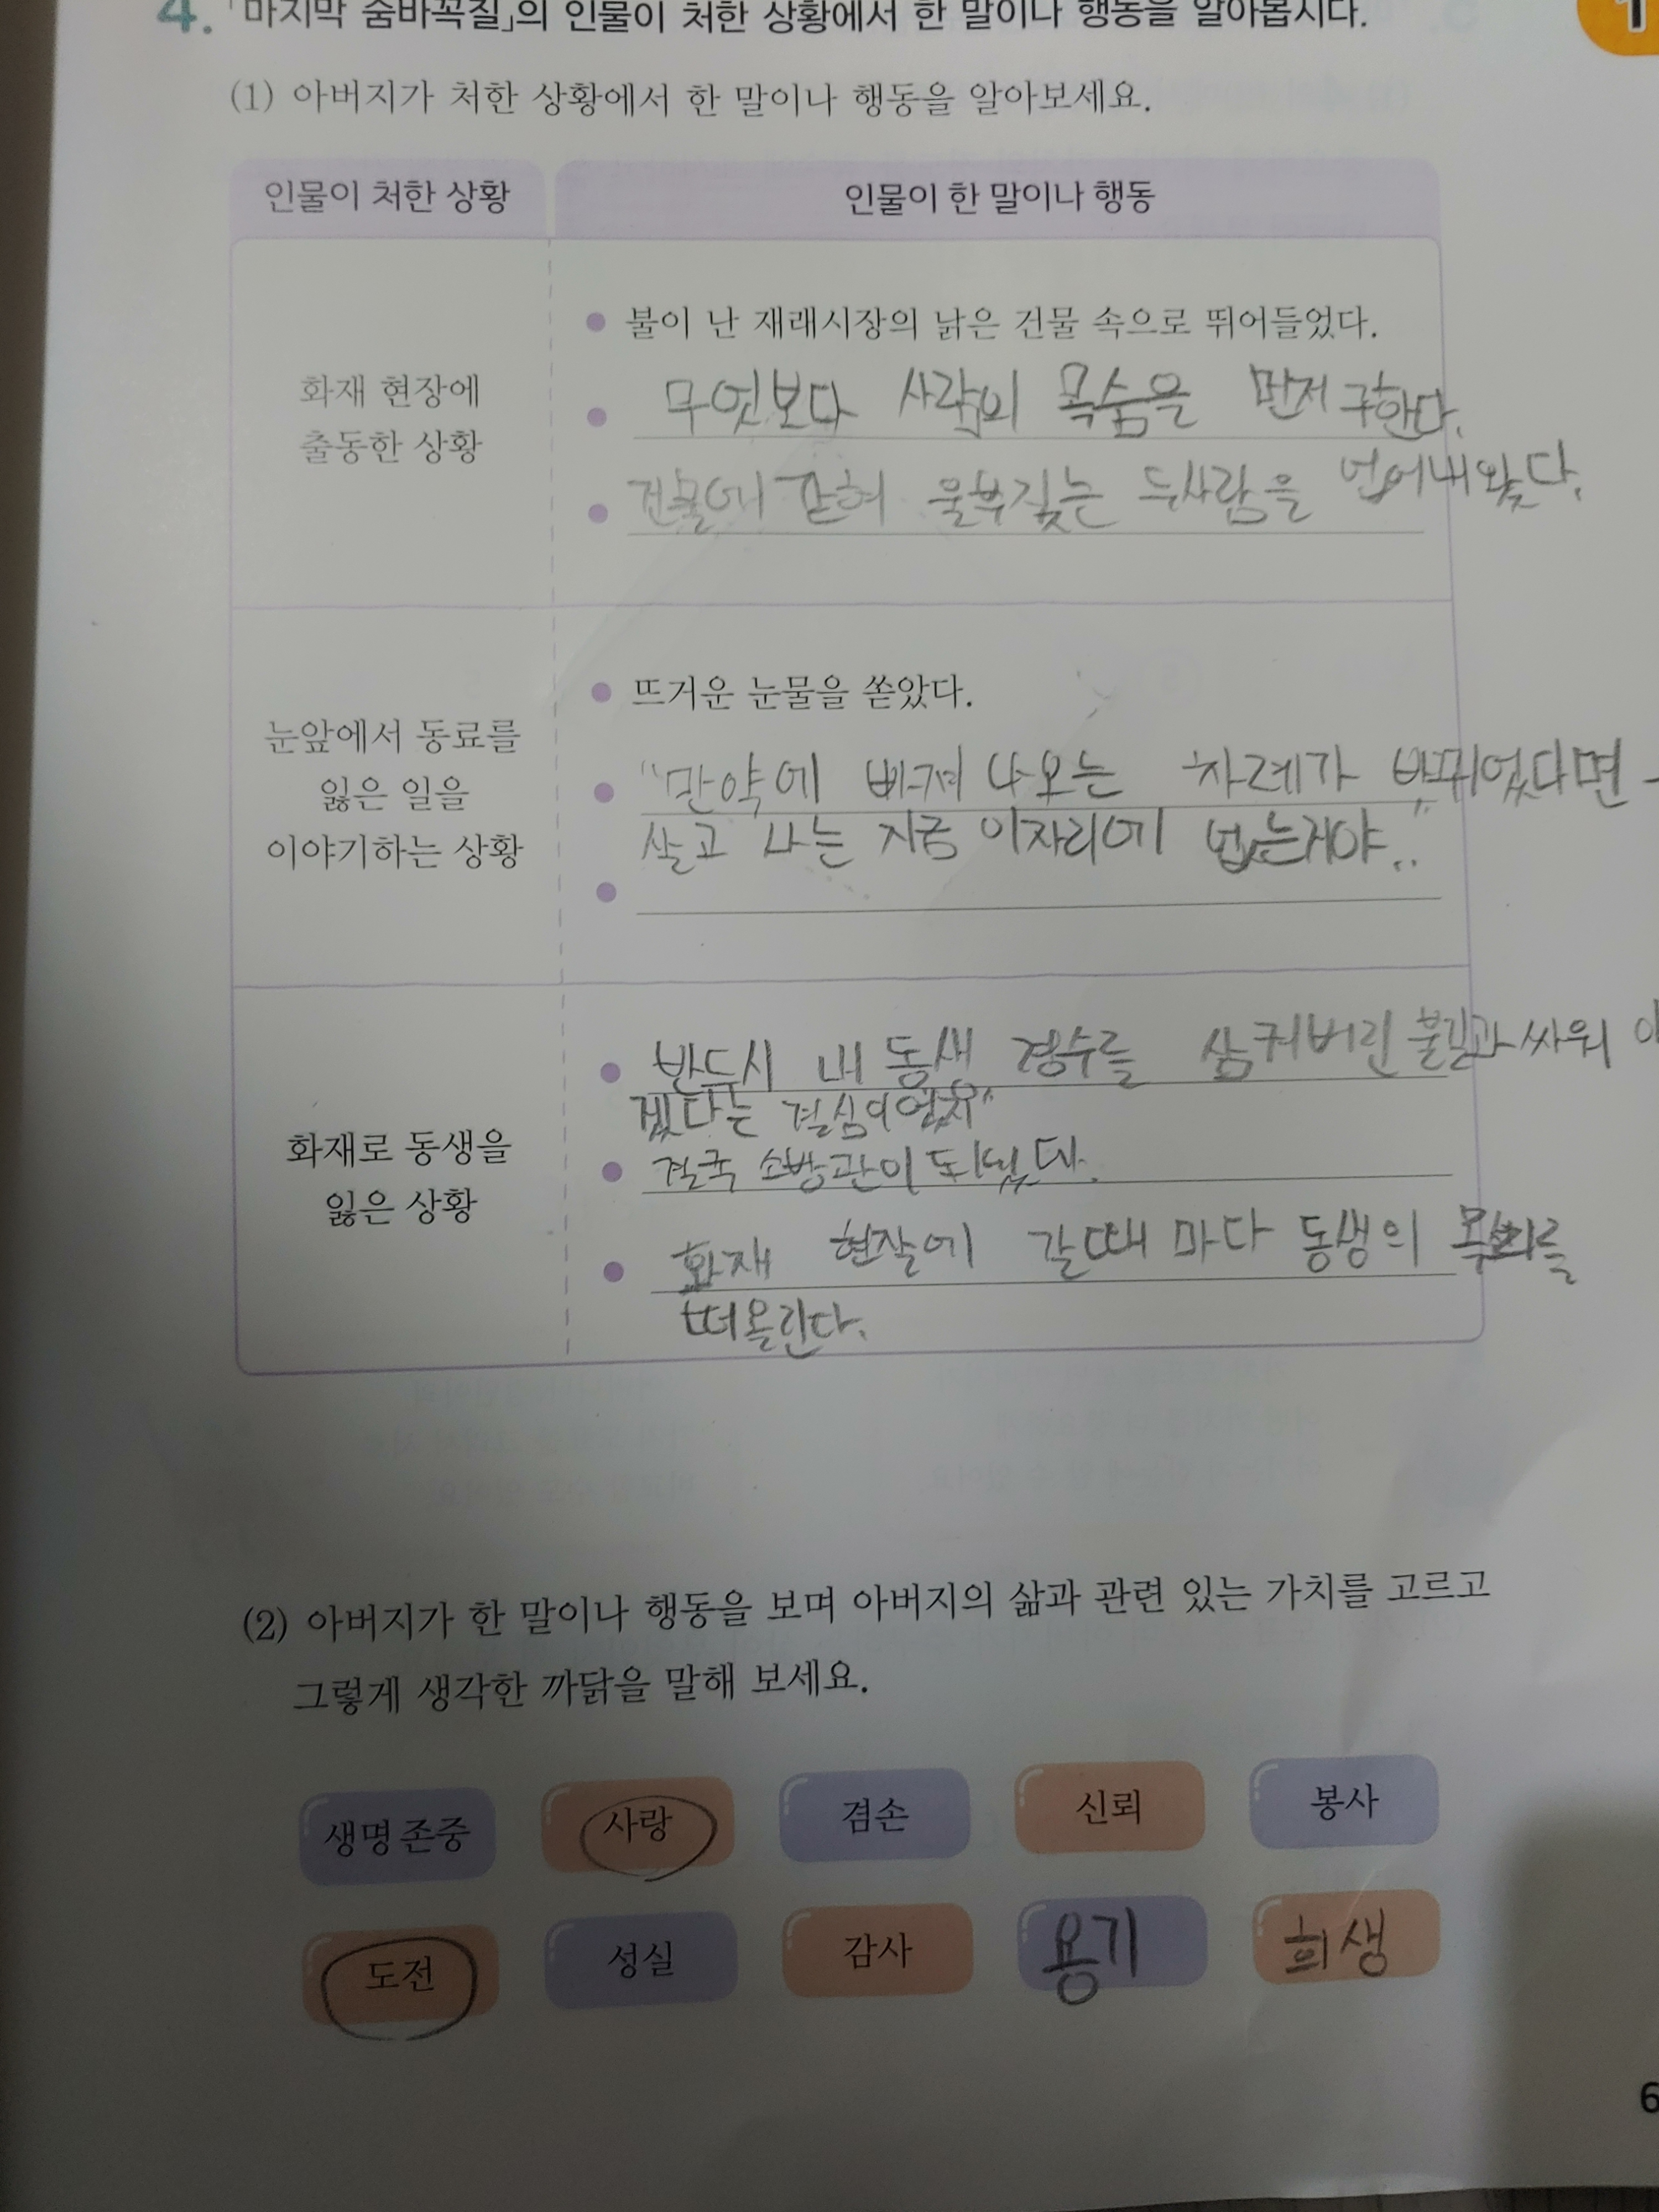 4. 「마지막 숨바꼭질」의 인물이 처한 상황에서 한 말이나 행동을 알아봅시다.
1
(1) 아버지가 처한 상황에서 한 말이나 행동을 알아보세요.
인물이 처한 상황
인물이 한 말이나 행동
화재 현장에
출동한 상황
불이 난 재래시장의 낡은 건물 속으로 뛰어들었다.
무엇보다 사람의 목숨을 먼저 구한다.
건물에 갇혀 울부짖는 두사람을 업어내왔다.
눈앞에서 동료를
잃은 일을
이야기하는 상황
뜨거운 눈물을 쏟았다.
"만약에 빠져 나오는 차례가 바뀌었다면
살고 나는 지금 이자리에 없는거야.."
화재로 동생을
잃은 상황
반드시 내 동생 경수를 삼켜버린 불길과 싸워 이
겠다는 결심이었지"
결국 소방관이 되었다.
화재 현장에 갈때 마다 동생의 를
떠올린다.
(2) 아버지가 한 말이나 행동을 보며 아버지의 삶과 관련 있는 가치를 고르고
그렇게 생각한 까닭을 말해 보세요.
생명 존중 사랑 겸손 신뢰 봉사
도전 성실 감사 용기 희생
6